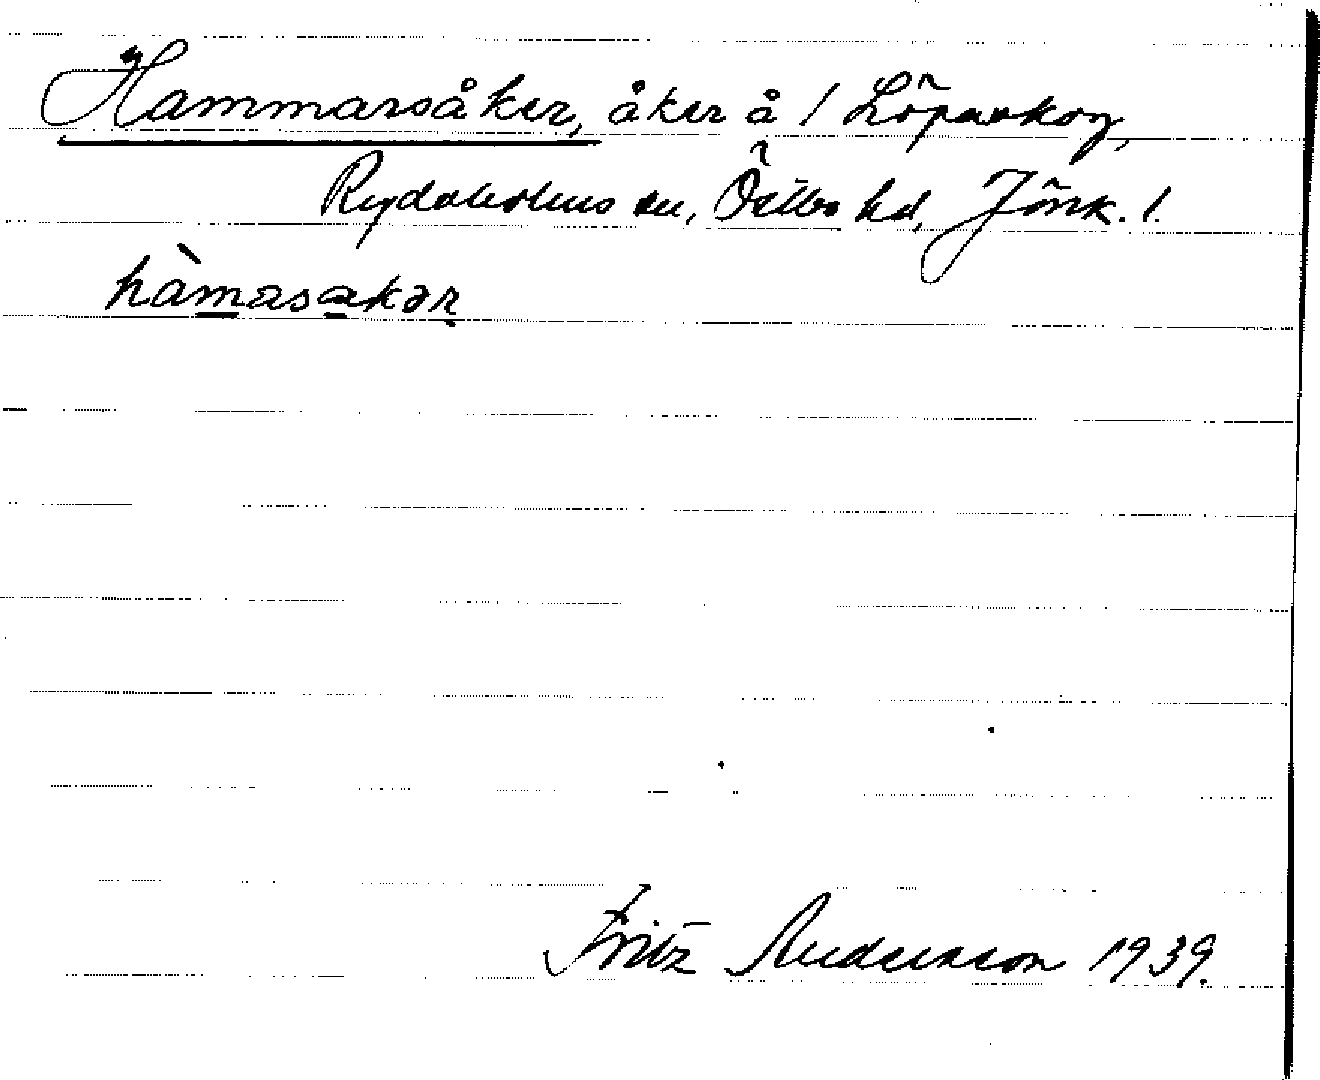 Hammarsåker, åker å / Löpaskog,
Rydaholms sn, Östbo hd, Jönk. l.
hàmasakər
Fritz Anderson 1939.